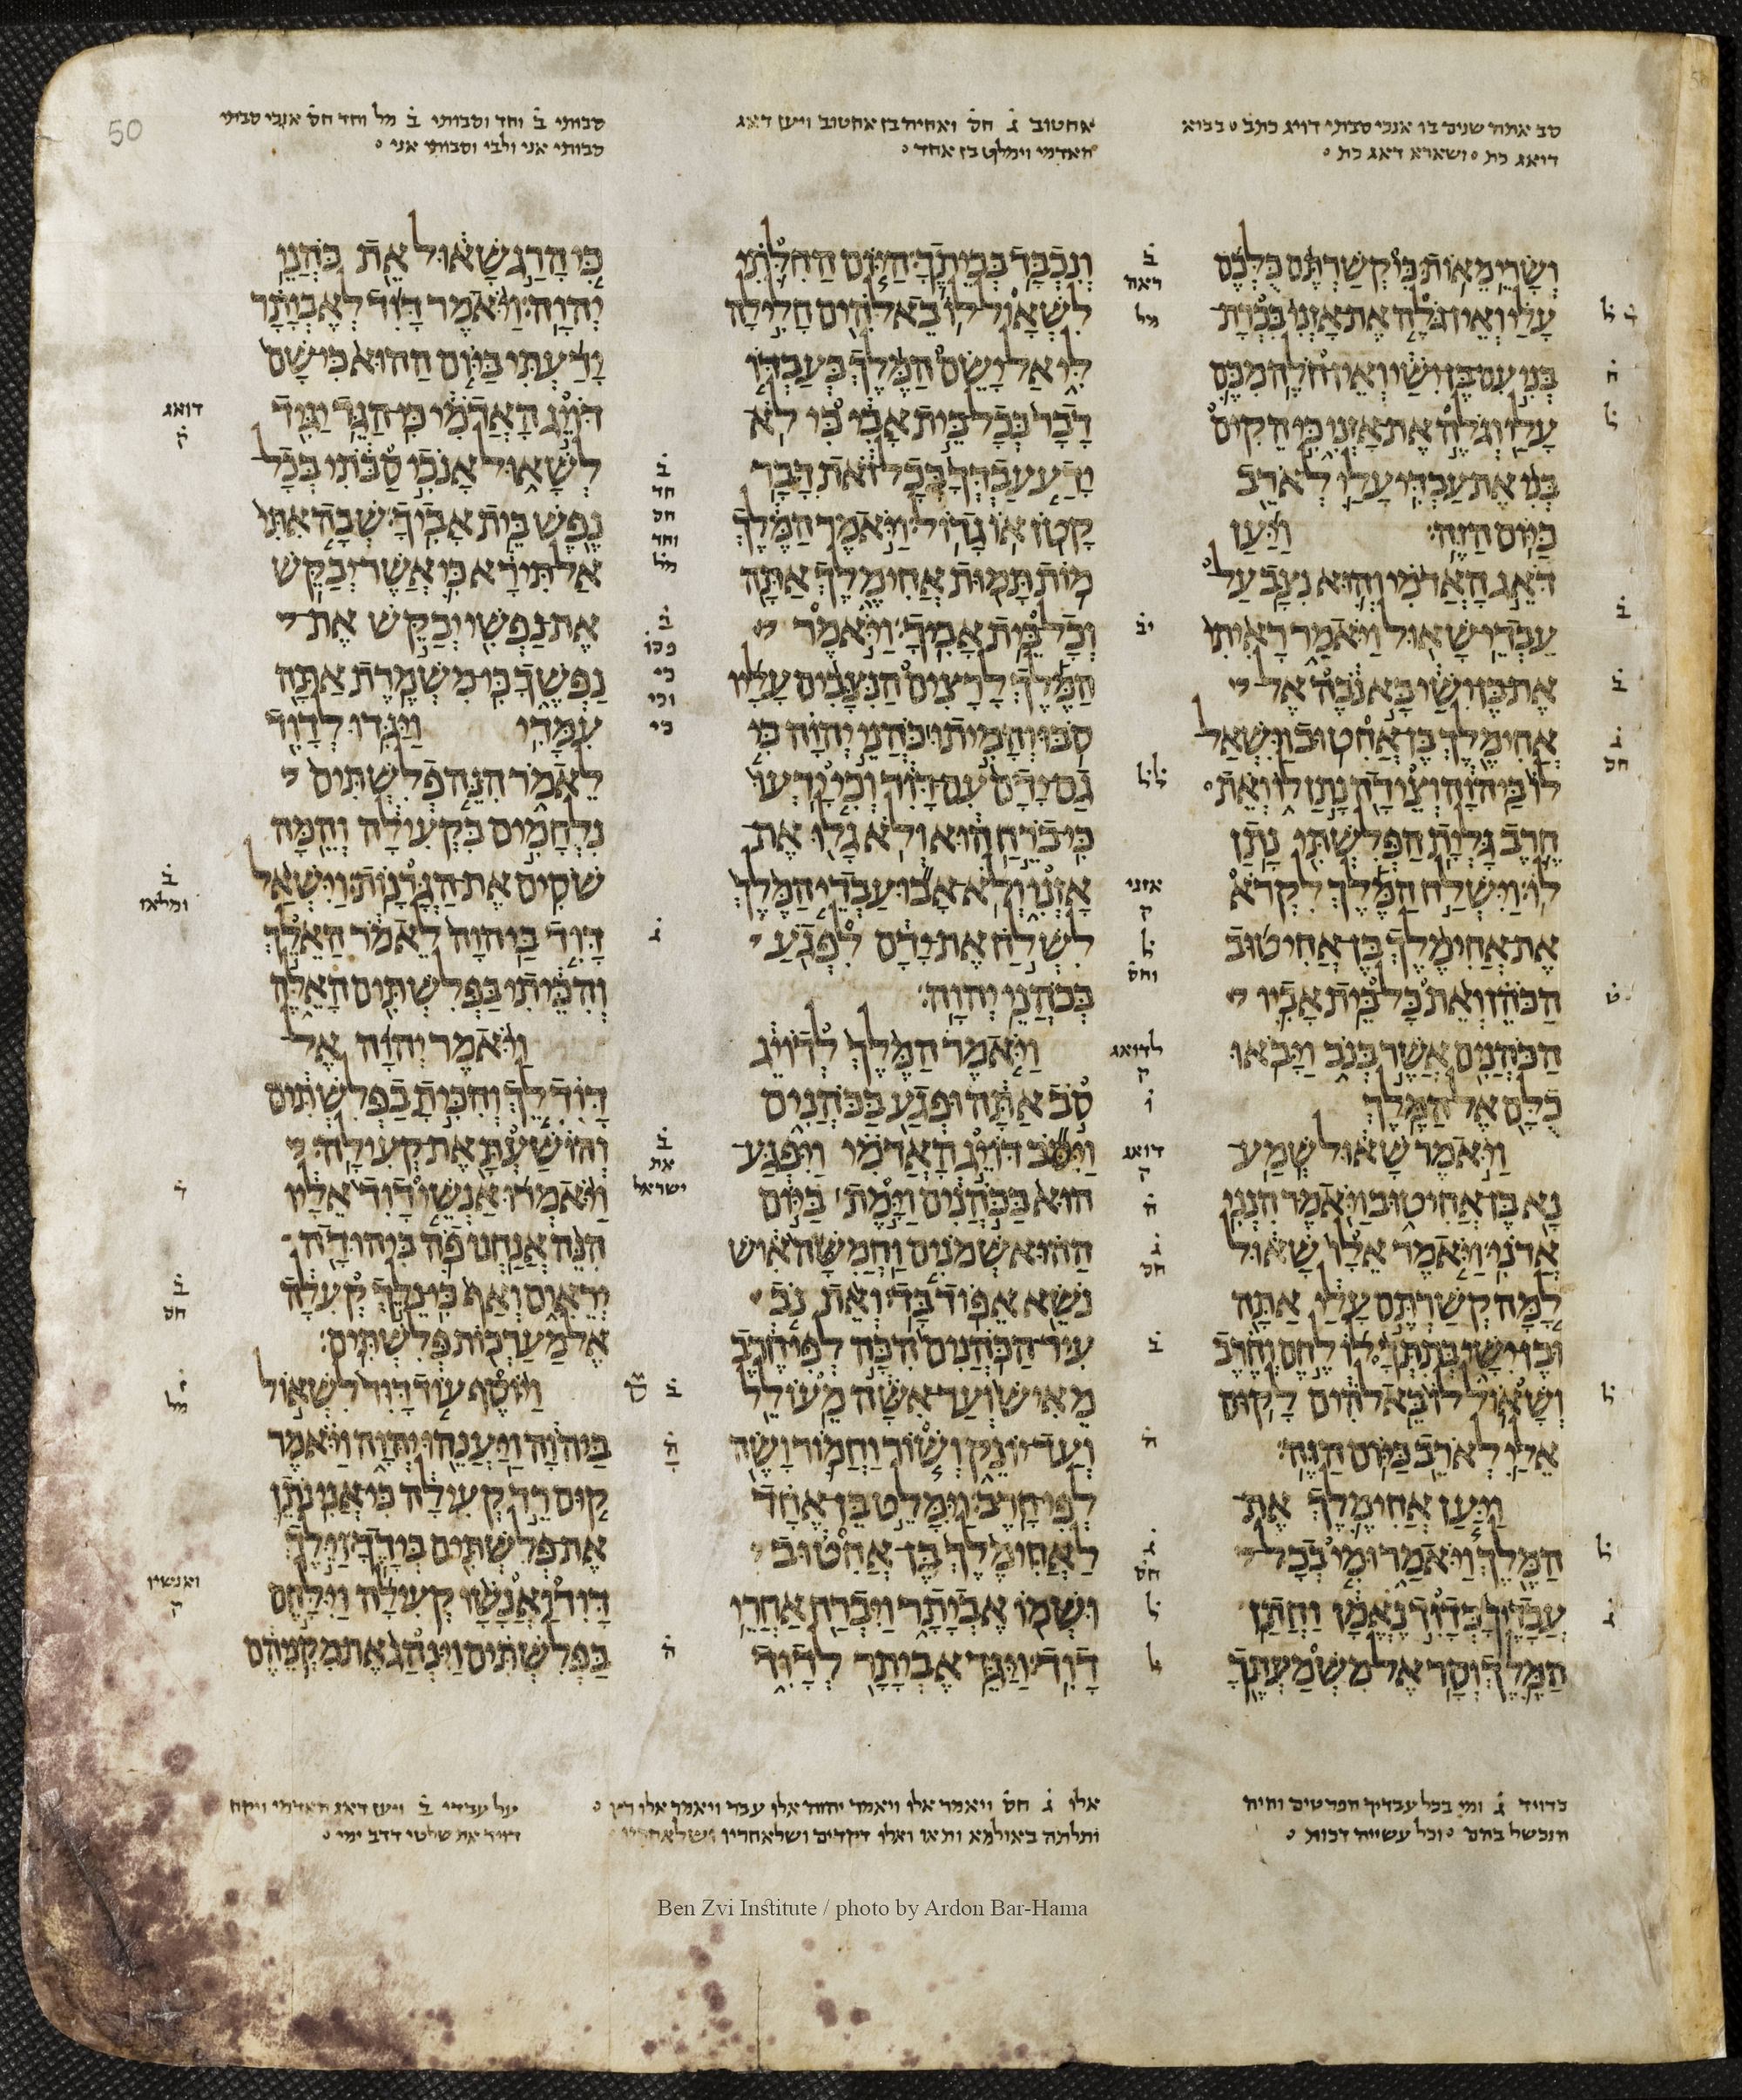 סב אתה שנים בו אנכי סבתי דויג כתב ׃ בבוא
דואג כת ׃ ושארא דאג כת ׃
אחטוב ג̇ חס ואחיה בן אחטוב ויען דאג
האדמי וימלט בן אחד ׃
סבותי ב̇ וחד וסבותי ב̇ מל וחד חס אנכי סבתי
סבותי אני ולבי וסבותי אני ׃
50
ושרי מאות כי קשרתם כלכם
עלי ואין גלה את אזני בכרת
בני עם בן ישי ואין חלה מכם
עלי וגלה את אזני כי הקים
בני את עבדי עלי לארב
כיום הזה׃ ויען
דאג האדמי והוא נצב על
עבדי שאול ויאמר ראיתי
את בן ישי בא נבה אל
אחימלך בן אחטוב וישאל
לו ביהוה וצידה נתן לו ואת
חרב גלית הפלשתי נתן
לו׃ וישלח המלך לקרא
את אחימלך בן אחיטוב
הכהן ואת כל בית אביו
הכהנים אשר בנב ויבאו
כלם אל המלך׃
ויאמר שאול שמע
נא בן אחיטוב ויאמר הנני
אדני׃ ויאמר אלו שאול
למה קשרתם עלי אתה
ובן ישי בתתך לו לחם וחרב
ושאול לו באלהים לקום
אלי לארב כיום הזה׃
ויען אחימלך את
המלך ויאמר ומי בכל
עבדיך כדוד נאמן וחתן
המלך וסר אל משמעתך
ונכבד בביתך׃ היום החלתי
לשאול לו באלהים חלילה
לי אל ישם המלך בעבדו
דבר בכל בית אבי כי לא
ידע עבדך בכל זאת דבר
קטן או גדול׃ ויאמר המלך
מות תמות אחימלך אתה
וכל בית אביך׃ ויאמר
המלך לרצים הנצבים עליו
סבו והמיתו כהני יהוה כי
גם ידם עם דוד וכי ידעו
כי ברח הוא ולא גלו את
אזנו ולא אבו עבדי המלך
לשלח את ידם לפגע
בכהני יהוה׃
ויאמר המלך לדויג
סב אתה ופגע בכהנים
ויסב דויג האדמי ויפגע
הוא בכהנים וימת ביום
ההוא שמנים וחמשה איש
נשא אפוד בד׃ ואת נב
עיר הכהנים הכה לפי חרב
מאיש ועד אשה מעולל
ועד יונק ושור וחמור ושה
לפי חרב׃ וימלט בן אחד
לאחימלך בן אחטוב
ושמו אביתר ויברח אחרי
דוד׃ ויגד אביתר לדוד
כי הרג שאול את כהני
יהוה׃ ויאמר דוד לאביתר
ידעתי ביום ההוא כי שם
דויג האדמי כי הגד יגיד
לשאול אנכי סבתי בכל
נפש בית אביך׃ שבה אתי
אל תירא כי אשר יבקש
את נפשי יבקש את
נפשך כי משמרת אתה
עמדי׃ ויגדו לדוד
לאמר הנה פלשתים
נלחמים בקעילה והמה
שסים את הגרנות׃ וישאל
דוד ביהוה לאמר האלך
והכיתי בפלשתים האלה
ויאמר יהוה אל
דוד לך והכית בפלשתים
והושעת את קעילה׃
ויאמרו אנשי דוד אליו
הנה אנחנו פה ביהודה
יראים ואף כי נלך קעלה
אל מערכות פלשתים׃
ויוסף עוד דוד לשאול
ביהוה ויענהו יהוה ויאמר
קום רד קעילה כי אני נתן
את פלשתים בידך׃ וילך
דוד ואנשו קעילה וילחם
בפלשתים וינהג את מקניהם
כדויד ג̇ ומי בכל עבדיך
וכל עשייה דכות ׃
אלו ג̇ חס ויאמר אלו ויאמר יהוה אלו עבר ויאמר אלו
על עבדי ב̇ ויען דאג האדמי ויקח
דויד את שלטי דדב ימי ׃
Ben Zvi Institute / photo by Ardon Bar-Hama